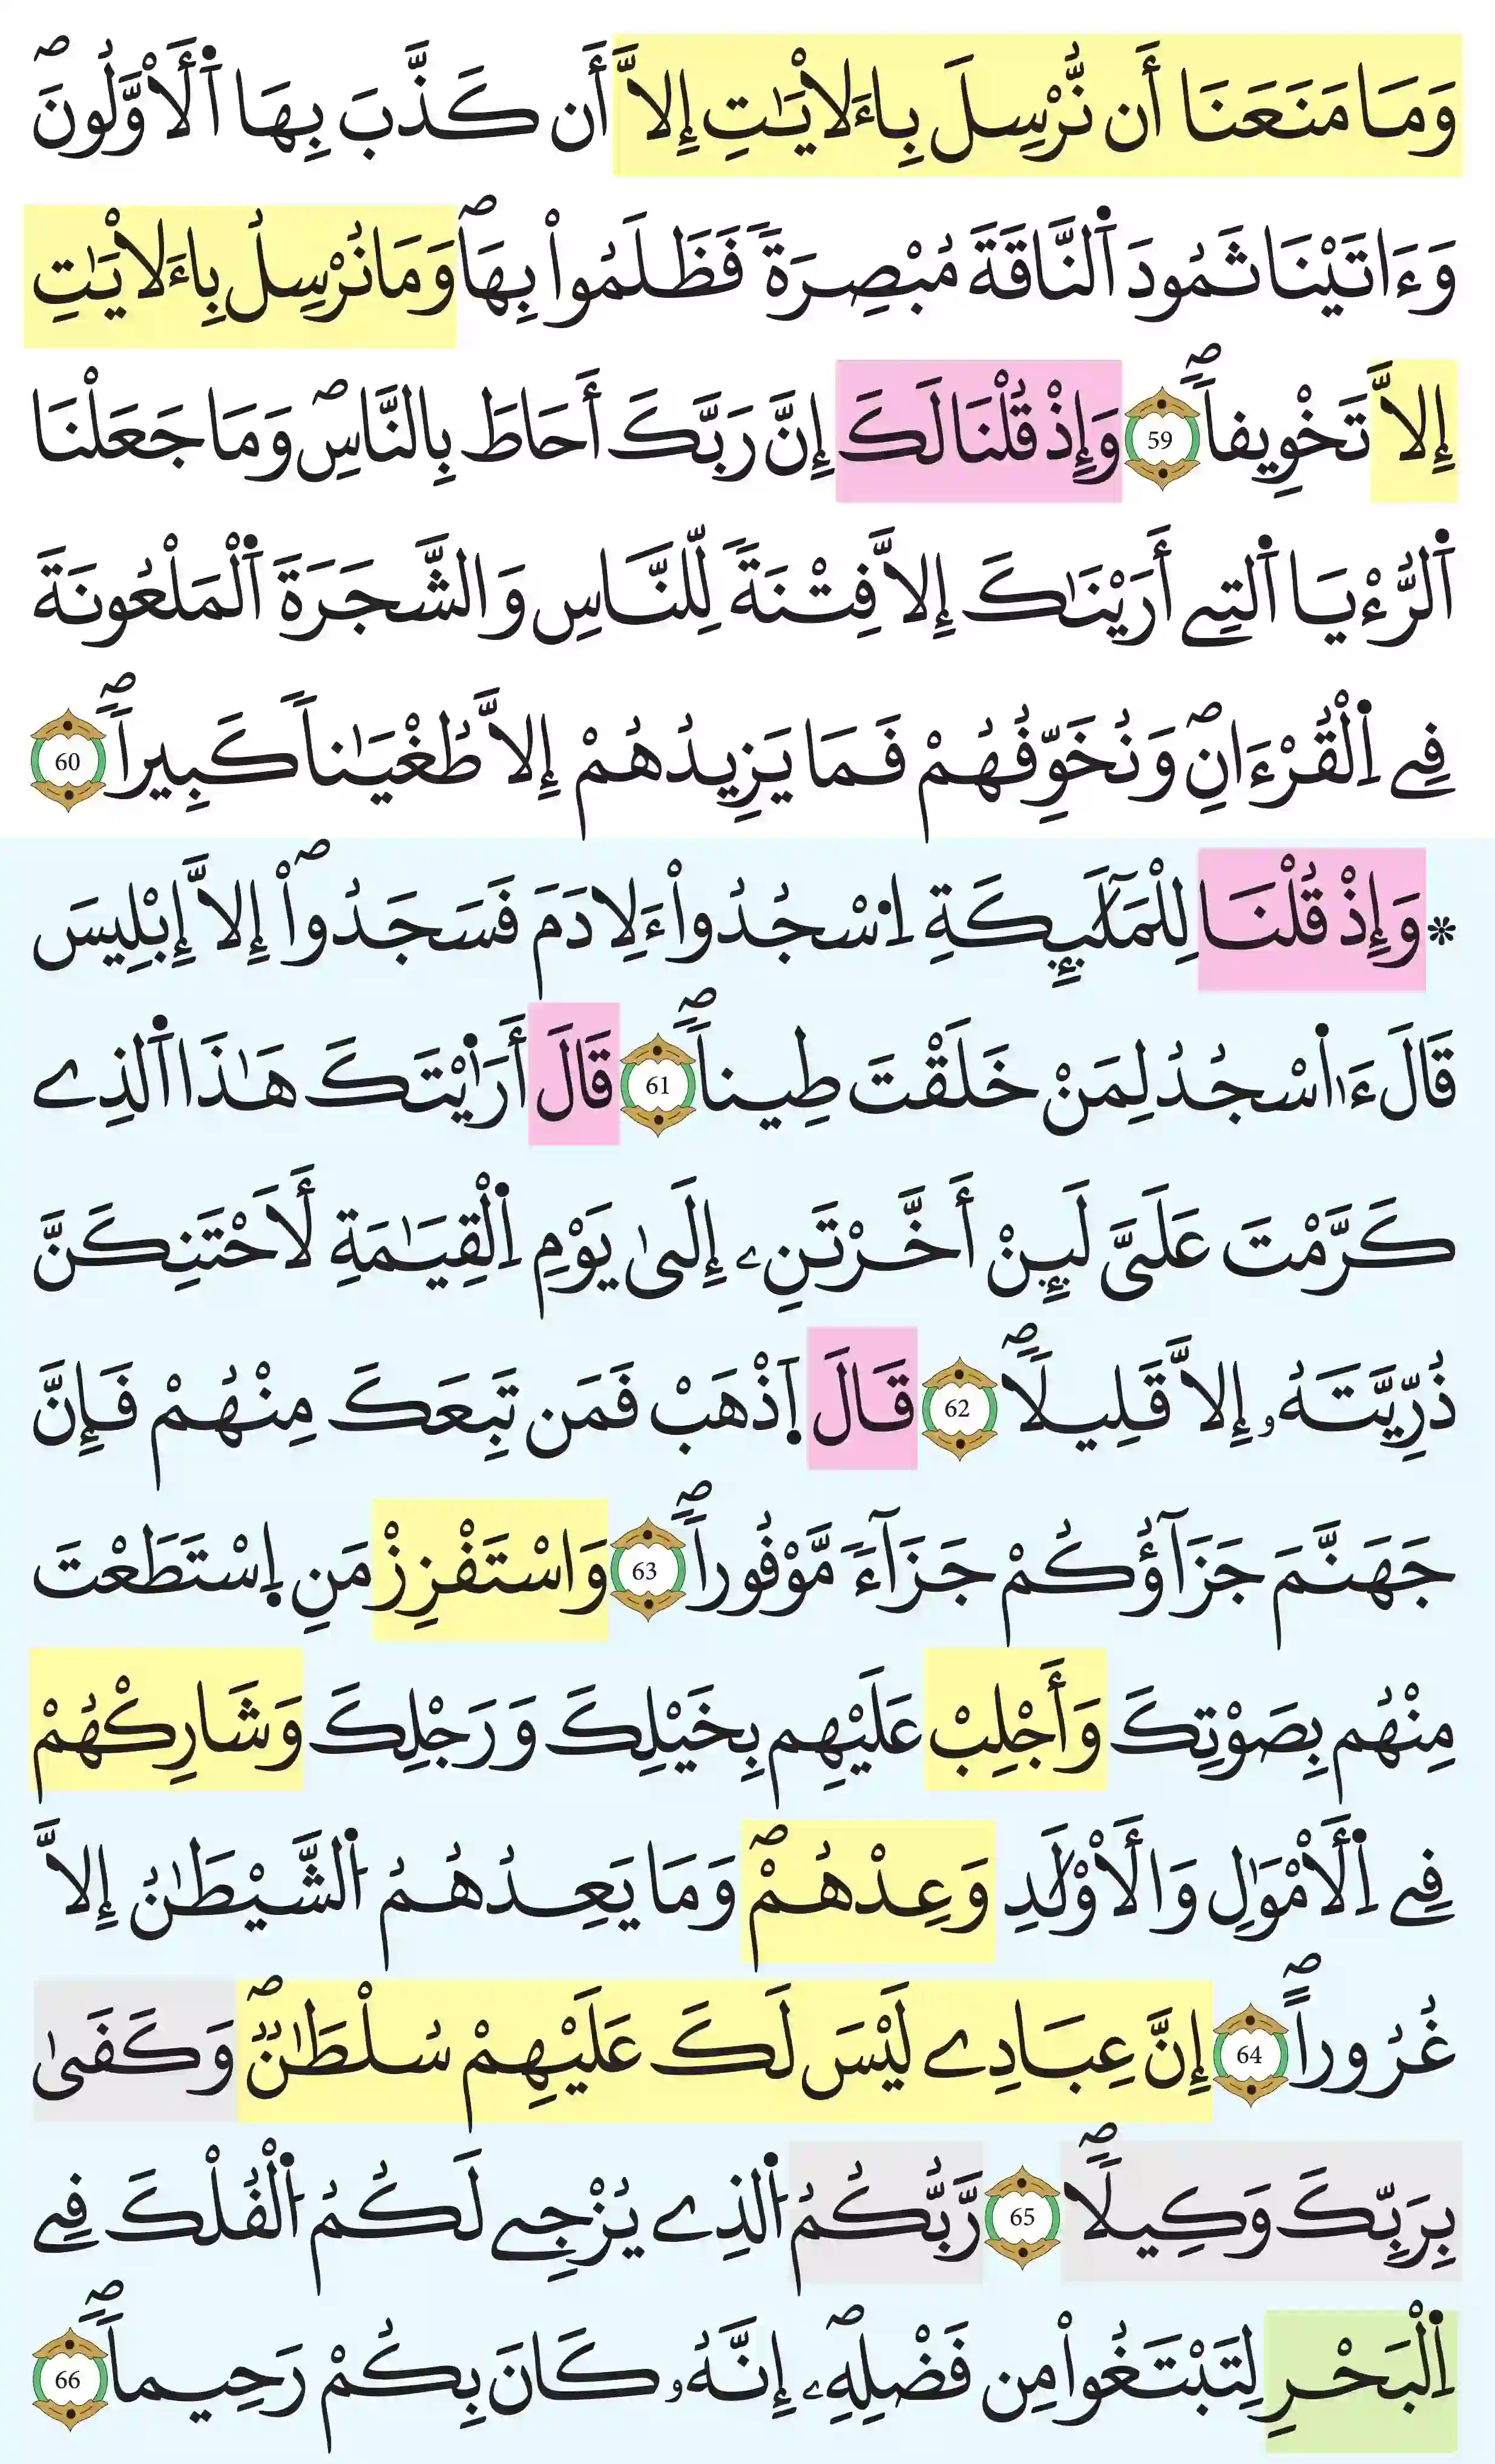 وَمَا مَنَعَنَا أَن نُّرْسِلَ بِاءَلَايْـَٰتِ إِلَّا أَن كَذَّبَ بِهَا اَ۬لَأوَّلُونَۖ
وَءَاتَيْنَا ثَمُودَ اَ۬لنَّاقَةَ مُبْصِرَةٗ فَظَلَمُواْ بِهَاۖ وَمَا نُرْسِلُ بِاءَلَايْـَٰتِ
إِلَّا تَخْوِيفاٗۖ 59 وَإِذْ قُلْنَا لَكَ إِنَّ رَبَّكَ أَحَاطَ بِالنَّاسِۖ وَمَا جَعَلْنَا
اَ۬لرُّءْيَا اَ۬لتِے أَرَيْنَٰكَ إِلَّا فِتْنَةٗ لِّلنَّاسِ وَالشَّجَرَةَ اَ۬لْمَلْعُونَةَ
فِے اِ۬لْقُرْءَانِۖ وَنُخَوِّفُهُمْ فَمَا يَزِيدُهُمْ إِلَّا طُغْيَٰناٗ كَبِيراٗۖ 60
* وَإِذْ قُلْنَا لِلْمَلَٰٓئِكَةِ اِ۟سْجُدُواْ ءَلِادَمَ فَسَجَدُواْۖ إِلَّا إِبْلِيسَ
قَالَ ءَا۬سْجُدُ لِمَنْ خَلَقْتَ طِيناٗۖ 61 قَالَ أَرَٰا۬يْتَكَ هَٰذَا اَ۬لذِے
كَرَّمْتَ عَلَيَّ لَئِنْ أَخَّرْتَنِۦ إِلَىٰ يَوْمِ اِ۬لْقِيَٰمَةِ لَأَحْتَنِكَنَّ
ذُرِّيَّتَهُۥ إِلَّا قَلِيلاٗۖ 62 قَالَ اَ۪ذْهَبْ فَمَن تَبِعَكَ مِنْهُمْ فَإِنَّ
جَهَنَّمَ جَزَآؤُكُمْ جَزَآءٗ مَّوْفُوراٗۖ 63 وَاسْتَفْزِزْ مَنِ اِ۪سْتَطَعْتَ
مِنْهُم بِصَوْتِكَ وَأَجْلِبْ عَلَيْهِم بِخَيْلِكَ وَرَجْلِكَ وَشَارِكْهُمْ
فِے اِ۬لَأمْوَٰلِ وَالَأوْلَٰدِ وَعِدْهُمْۖ وَمَا يَعِدُهُمُ اُ۬لشَّيْطَٰنُ إِلَّا
غُرُوراٗۖ 64 إِنَّ عِبَادِے لَيْسَ لَكَ عَلَيْهِمْ سُلْطَٰنٞۖ وَكَفَىٰ
بِرَبِّكَ وَكِيلاٗۖ 65 رَّبُّكُمُ اُ۬لذِے يُزْجِے لَكُمُ اُ۬لْفُلْكَ فِے
اِ۬لْبَحْرِ لِتَبْتَغُواْ مِن فَضْلِهِۦۖ إِنَّهُۥ كَانَ بِكُمْ رَحِيماٗۖ 66